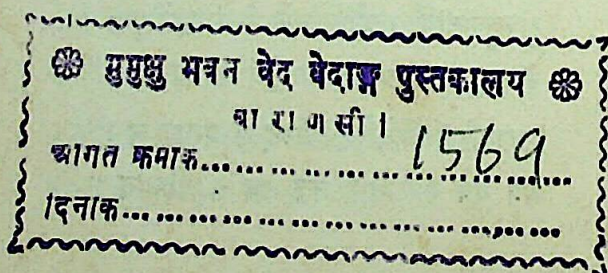 ❀ मुमुक्षु भवन वेद वेदाङ्ग पुस्तकालय ❀
वा रा ण सी ।
आगत क्रमाक.................... 1569
दिनाक........................................